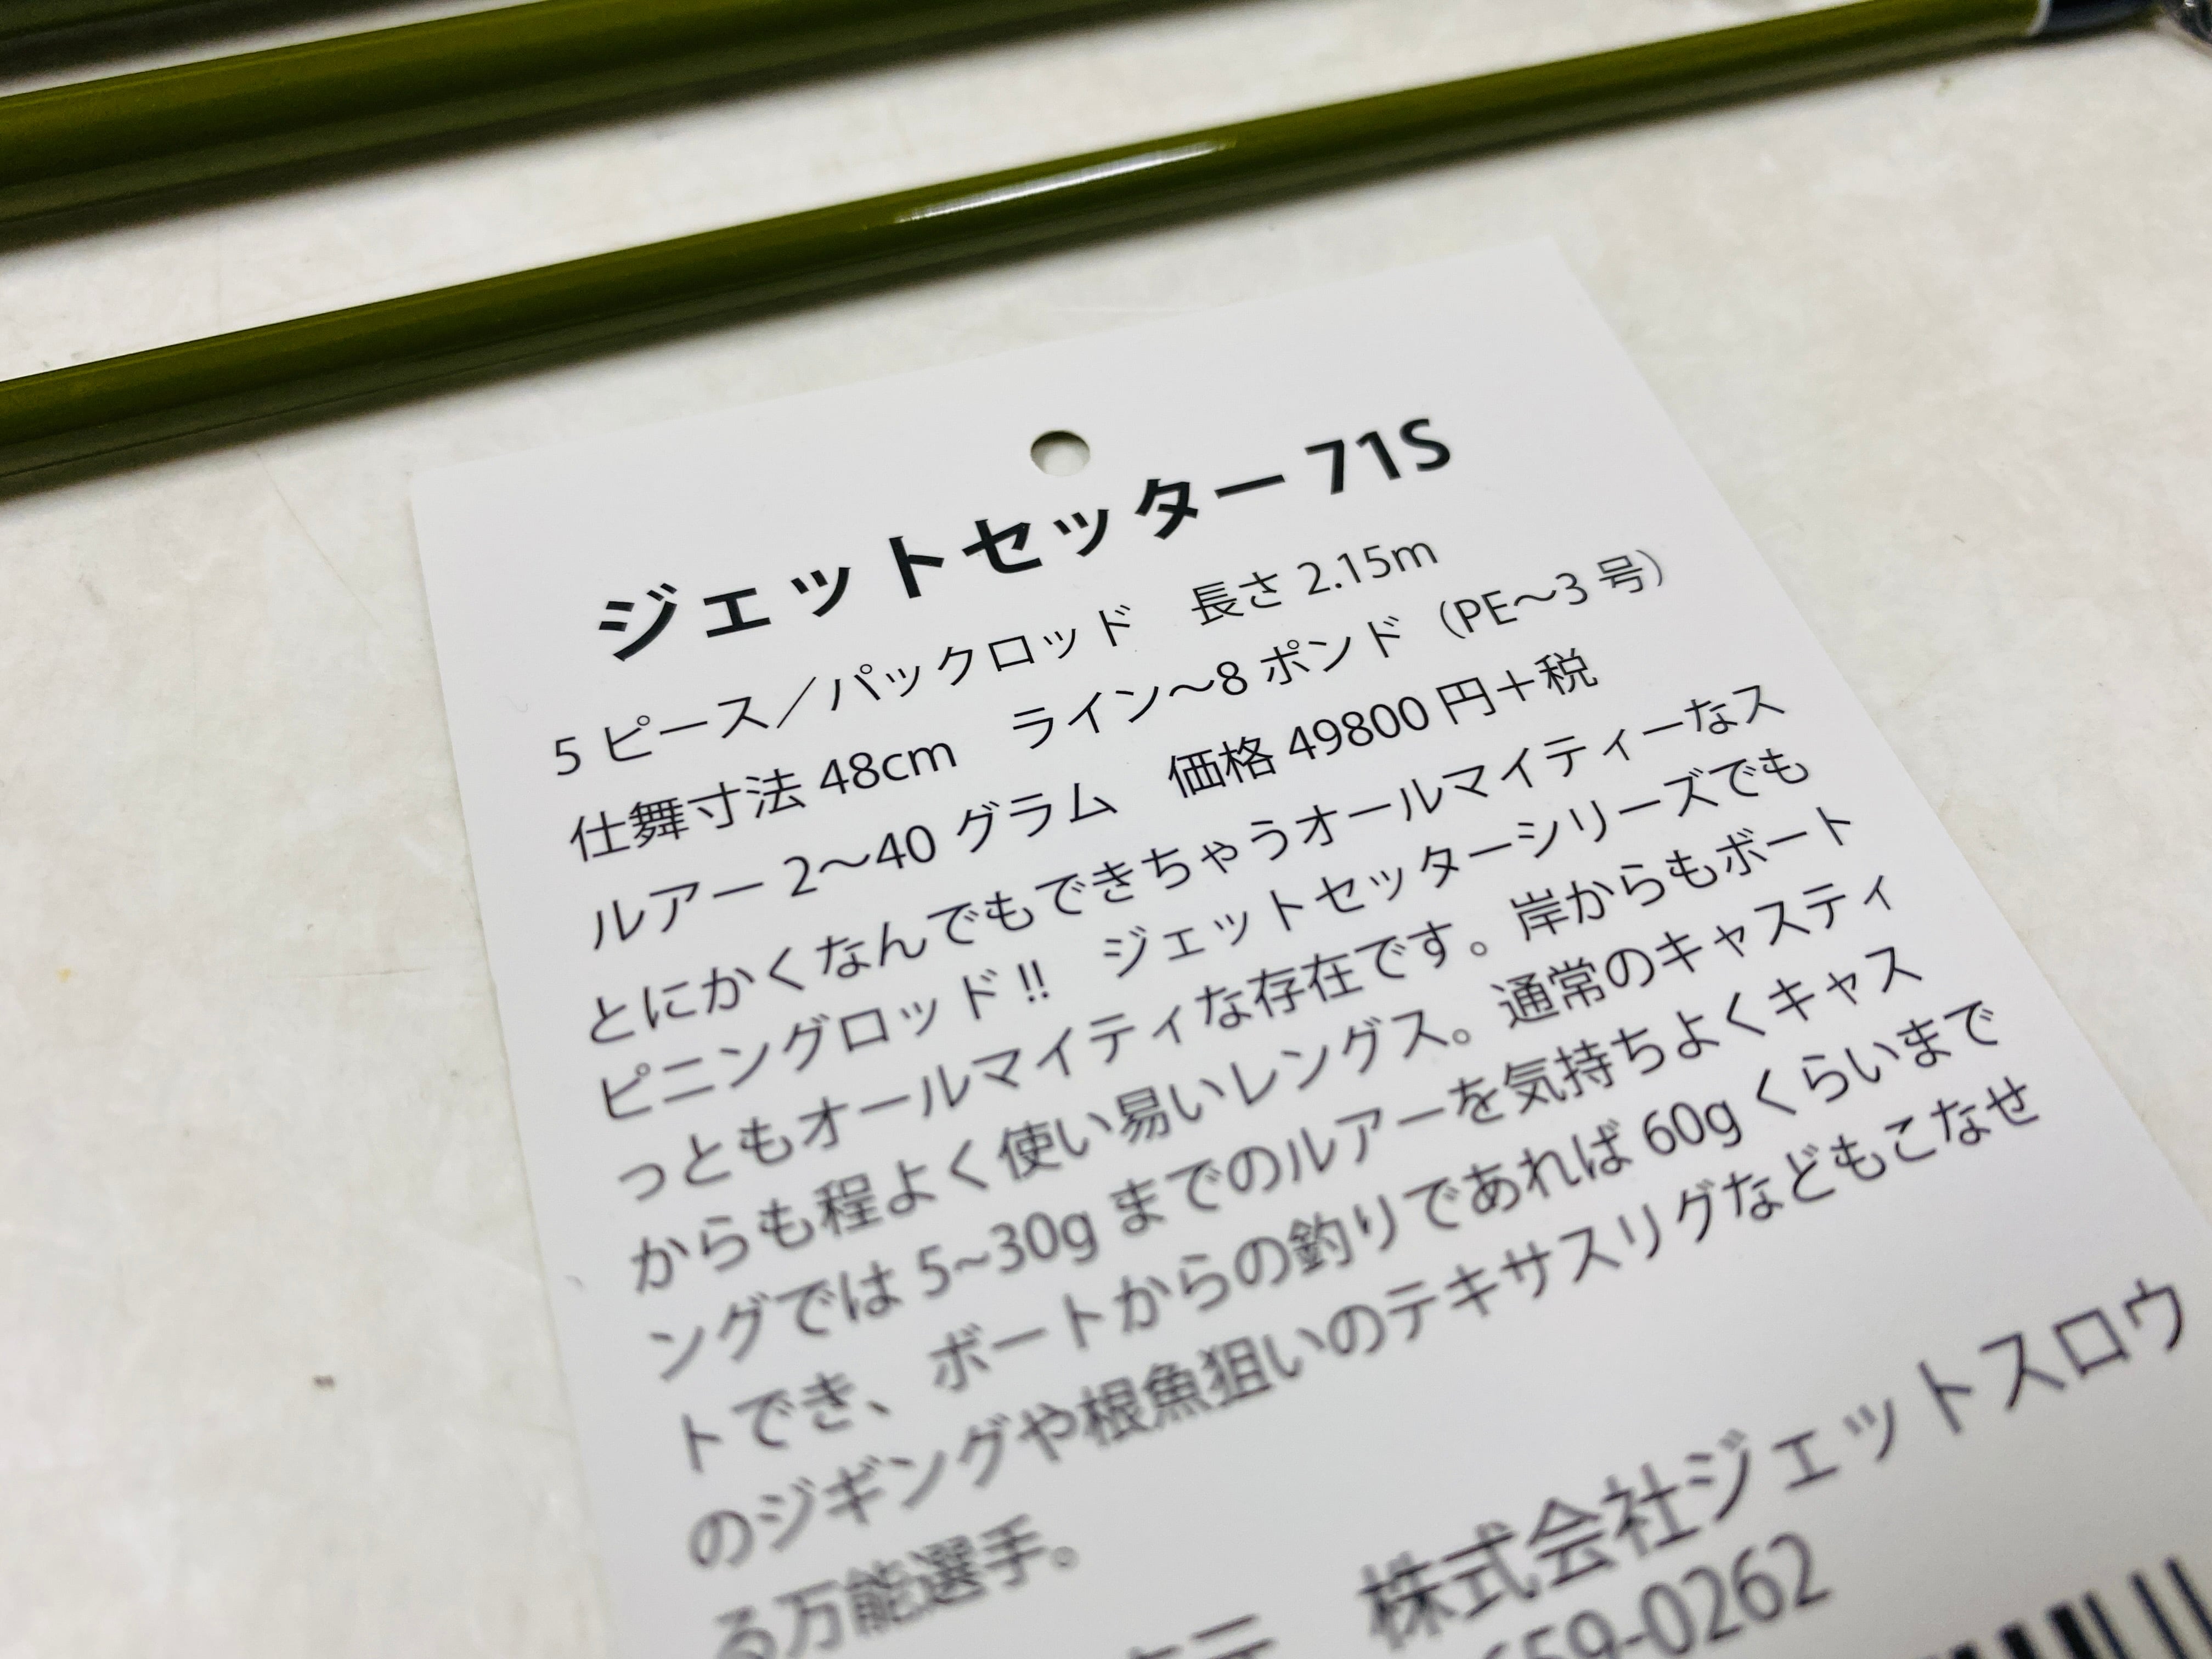 ジェットセッター 71S
5 ピース／パックロッド　長さ 2.15m
仕舞寸法 48cm　ライン〜8 ポンド（PE〜3 号）
ルアー 2〜40 グラム　価格 49800 円＋税
とにかくなんでもできちゃうオールマイティーなス
ピニングロッド !!　ジェットセッターシリーズでも
っともオールマイティな存在です。岸からもボート
からも程よく使い易いレングス。通常のキャスティ
ングでは 5~30g までのルアーを気持ちよくキャス
トでき、ボートからの釣りであれば 60g くらいまで
のジギングや根魚狙いのテキサスリグなどもこなせ
る万能選手。
株式会社ジェットスロウ
659-0262